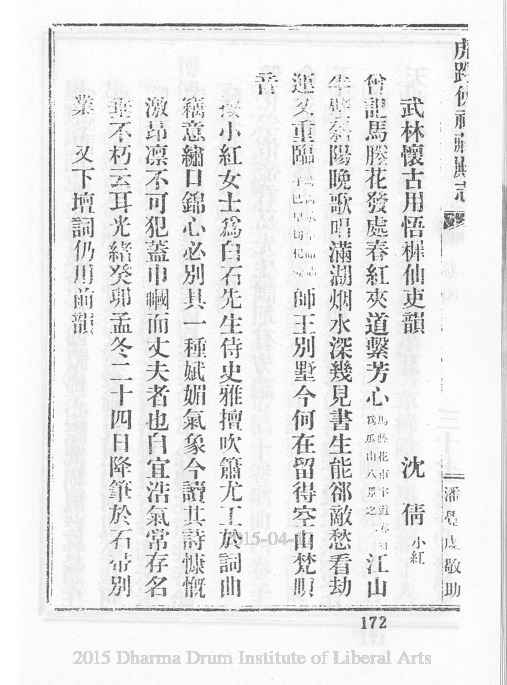 武林懷古用悟樨仙吏韻
沈倩小紅
曾記馬塍花發處春紅夾道繫芳心江山
陽晚歌唱滿湖烟水深幾見書生能郤敵愁看劫
運又重臨師王別墅今何在留得空山梵唄
音
按小紅女士爲白石先生侍史雅擅吹簫尤工於詞曲
竊意繡口錦心必別具一種娬媚氣象今讀其詩慷慨
激昂凛不可犯蓋巾幗而丈夫者也自宜浩氣常存名
垂不朽云耳光緒癸卯孟冬二十四日降筆於石帚別
業 又下壇詞仍用前韻
敬助
172
2015-04-
2015 Dharma Drum Institute of Liberal Arts